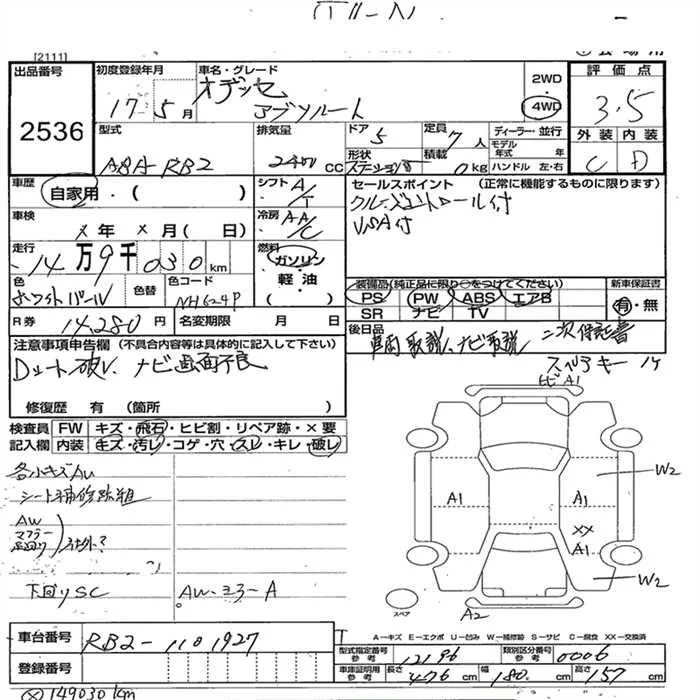 [2111]
出品番号 初度登録年月 車名・グレード 2WD 評価点
2536 17年5月 オデッセイ アブソルート 4WD 3.5
型式 排気量 ドア 定員 ディーラー・並行 外装 内装
ABA-RB2 2400cc 5 7人 モデル年式 年 C D
形状 積載 ハンドル 左・右
ステーションW 0kg
車歴 自家用・( ) シフト A/T セールスポイント (正常に機能するものに限ります)
車検 X年X月( 日) 冷房 AA/C クルーズコントロール付
VSA付
走行 14万9千030km 燃料 ガソリン
軽油
( )
色 ホワイトパール 色替 色コード NH624P
装備品(純正品に限り○をつけてください) 新車保証書
PS PW ABS エアB 有・無
SR ナビ TV
R券 14,280円 名変期限 月 日
後日品 車両取説、ナビ取説 二次保証書
スペアキー1ケ
注意事項申告欄 (不具合内容等は具体的に記入して下さい)
Dシート破レ、ナビ画面不良
修復歴 有 (箇所 )
検査員 FW キズ・飛石・ヒビ割・リペア跡・×要
記入欄 内装 キズ・汚レ・コゲ・穴・スレ・キレ・破レ
各小キズAU
シート補修跡粗
AW
マフラー
足回り
社外?
下回りSC
AW・ミラーA
A1
W2
A1 A1
XX
A1
W2
スペア
A2
A-キズ E-エクボ U-凹み W-補修跡 S-サビ C-腐食 XX-交換済
車台番号 RB2-1101927
型式指定番号 参考 12196 類別区分番号 参考 0006
登録番号
車庫証明用 参考 長さ 476cm 幅 180cm 高さ 157cm
149030km